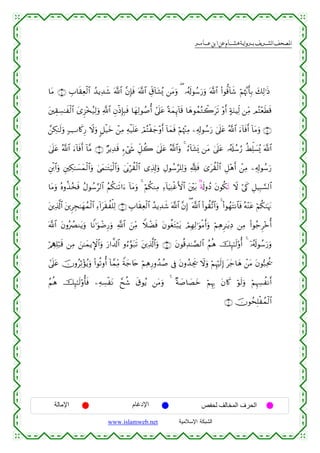 المصحف الشريف برواية هشام عن ابن عامر
ذَٰلِكَ بِأَنَّهُمْ شَآقُّوا۟ ٱللَّهَ وَرَسُولَهُۥ ۖ وَمَن يُشَآقِّ ٱللَّهَ فَإِنَّ ٱللَّهَ شَدِيدُ ٱلْعِقَابِ ۝ مَا
قَطَعْتُم مِّن لِّينَةٍ أَوْ تَرَكْتُمُوهَا قَآئِمَةً عَلَىٰٓ أُصُولِهَا فَبِإِذْنِ ٱللَّهِ وَلِيُخْزِىَ ٱلْفَٰسِقِينَ
۝ وَمَآ أَفَآءَ ٱللَّهُ عَلَىٰ رَسُولِهِۦ مِنْهُمْ فَمَآ أَوْجَفْتُمْ عَلَيْهِ مِنْ خَيْلٍ وَلَا رِكَابٍ وَلَٰكِنَّ
ٱللَّهَ يُسَلِّطُ رُسُلَهُۥ عَلَىٰ مَن يَشَآءُ ۚ وَٱللَّهُ عَلَىٰ كُلِّ شَىْءٍ قَدِيرٌ ۝ مَّآ أَفَآءَ ٱللَّهُ عَلَىٰ
رَسُولِهِۦ مِنْ أَهْلِ ٱلْقُرَىٰ فَلِلَّهِ وَلِلرَّسُولِ وَلِذِى ٱلْقُرْبَىٰ وَٱلْيَتَٰمَىٰ وَٱلْمَسَٰكِينِ وَٱبْنِ
ٱلسَّبِيلِ كَىْ لَا تَكُونَ دُولَةٌۢ بَيْنَ ٱلْأَغْنِيَآءِ مِنكُمْ ۚ وَمَآ ءَاتَىٰكُمُ ٱلرَّسُولُ فَخُذُوهُ وَمَا
نَهَىٰكُمْ عَنْهُ فَٱنتَهُوا۟ ۚ وَٱتَّقُوا۟ ٱللَّهَ ۖ إِنَّ ٱللَّهَ شَدِيدُ ٱلْعِقَابِ ۝ لِلْفُقَرَآءِ ٱلْمُهَٰجِرِينَ ٱلَّذِينَ
أُخْرِجُوا۟ مِن دِيَٰرِهِمْ وَأَمْوَٰلِهِمْ يَبْتَغُونَ فَضْلًا مِّنَ ٱللَّهِ وَرِضْوَٰنًا وَيَنصُرُونَ ٱللَّهَ
وَرَسُولَهُۥٓ ۚ أُو۟لَٰٓئِكَ هُمُ ٱلصَّٰدِقُونَ ۝ وَٱلَّذِينَ تَبَوَّءُو ٱلدَّارَ وَٱلْإِيمَٰنَ مِن قَبْلِهِمْ
يُحِبُّونَ مَنْ هَاجَرَ إِلَيْهِمْ وَلَا يَجِدُونَ فِى صُدُورِهِمْ حَاجَةً مِّمَّآ أُوتُوا۟ وَيُؤْثِرُونَ عَلَىٰٓ
أَنفُسِهِمْ وَلَوْ كَانَ بِهِمْ خَصَاصَةٌ ۚ وَمَن يُوقَ شُحَّ نَفْسِهِۦ فَأُو۟لَٰٓئِكَ هُمُ
ٱلْمُفْلِحُونَ ۝
الحرف المخالف لحفص الإدغام الإمالة
الشبكة الإسلامية www.islamweb.net